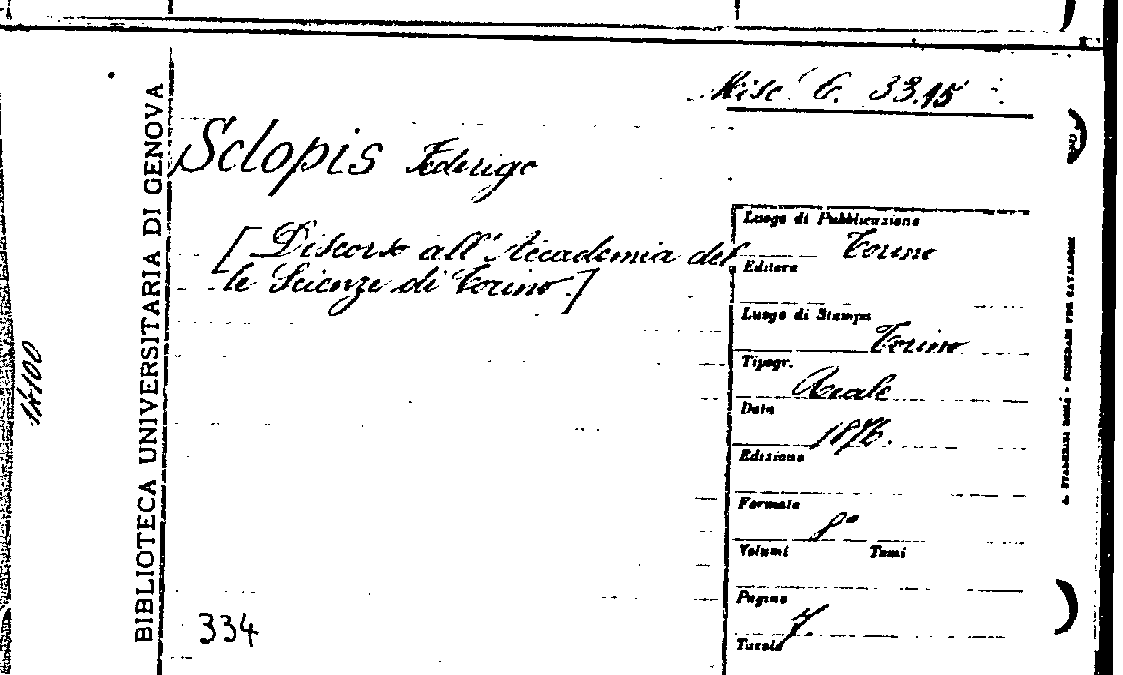 Misc. G. 33.15
Sclopis Federigo
[Discorso all'Accademia del
le Scienze di Torino.]
Luogo di Pubblicazione
Torino
Editore
Luogo di Stampa
Torino
Tipogr.
Reale
Data
1876.
Edizione
Formato
8°
Volumi Tomi
Pagine
7.
Tavole
334
BIBLIOTECA UNIVERSITARIA DI GENOVA
14100